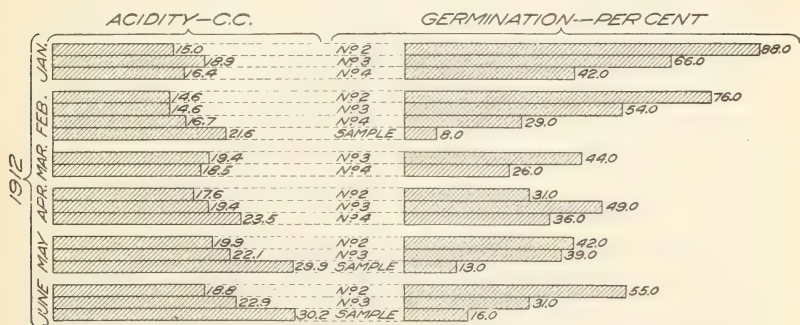 ACIDITY—C.C. GERMINATION--PER CENT
1912
JAN.
15.0 Nº2 88.0
18.9 Nº3 66.0
16.4 Nº4 42.0
FEB.
14.6 Nº2 76.0
14.6 Nº3 54.0
16.7 Nº4 29.0
21.6 SAMPLE 8.0
MAR.
19.4 Nº3 44.0
18.5 Nº4 26.0
APR.
17.6 Nº2 31.0
19.4 Nº3 49.0
23.5 Nº4 36.0
MAY
19.9 Nº2 42.0
22.1 Nº3 39.0
29.9 SAMPLE 13.0
JUNE
18.8 Nº2 55.0
22.9 Nº3 31.0
30.2 SAMPLE 16.0